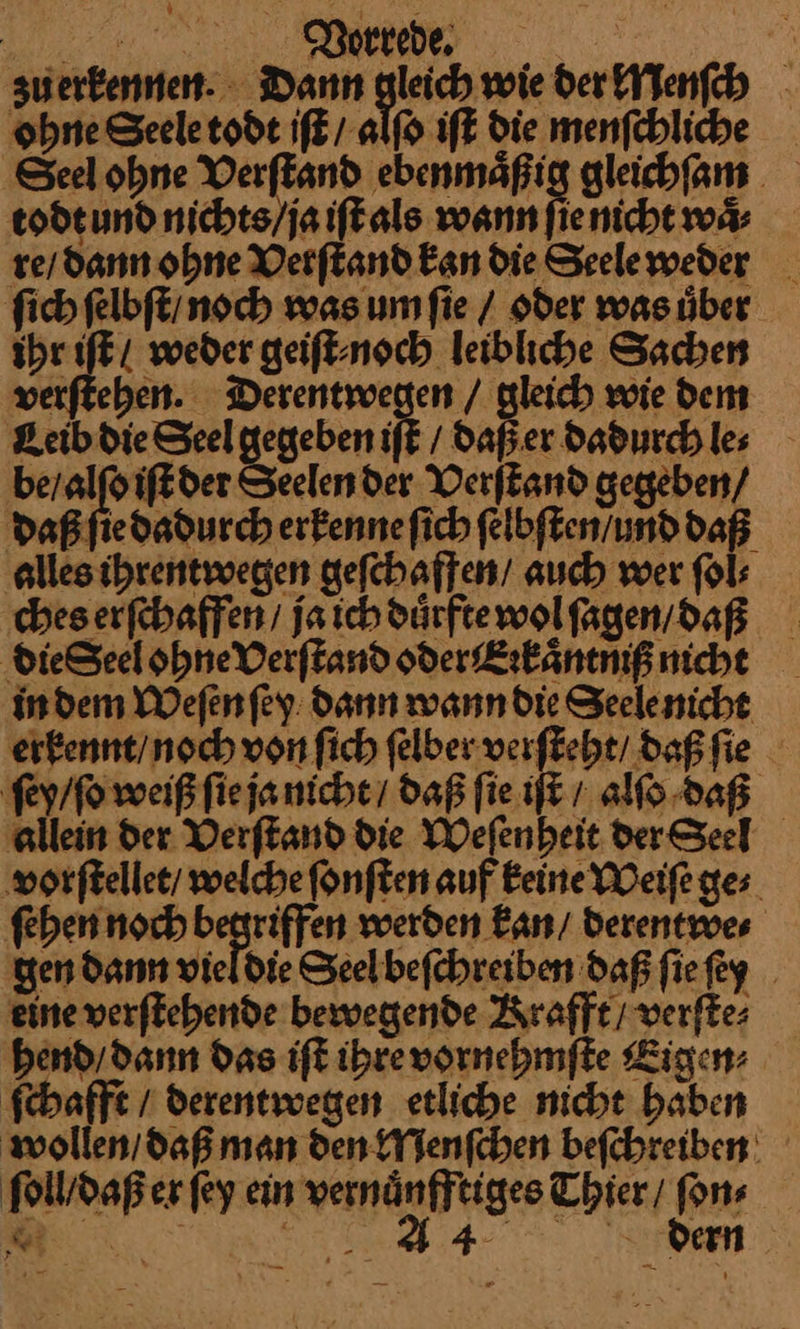 Vorrede.
zu erkennen. Dann gleich wie der Menſch
ohne Seele todt iſt / alſo iſt die menſchliche
Seel ohne Verſtand ebenmaͤßig gleichſam
todt und nichts / ja iſt als wann ſie nicht waͤ⸗
re / dann ohne Verſtand kan die Seele weder
ſich ſelbſt / noch was um ſie / oder was uͤber
ihr iſt / weder geiſt⸗noch leibliche Sachen
verſtehen. Derentwegen / gleich wie dem
Leib die Seel gegeben iſt / daß er dadurch le⸗
be / alſo iſt der Seelen der Verſtand gegeben /
daß ſie dadurch erkenne ſich ſelbſten / und daß
alles ihrentwegen geſchaffen / auch wer ſol⸗
ches erſchaffen / ja ich duͤrfte wol ſagen / daß
die Seel ohne Verſtand oder Erkaͤntniß nicht
in dem Weſen ſey dann wann die Seele nicht
erkennt / noch von ſich ſelber verſteht / daß ſie
ſey / ſo weiß ſie ja nicht / daß ſie iſt / alſo daß
allein der Verſtand die Weſenheit der Seel
vorſtellet / welche ſonſten auf keine Weiſe ge⸗
ſehen noch begriffen werden kan / derentwe⸗
gen dann viel die Seel beſchreiben daß ſie ſey
eine verſtehende bewegende Krafft / verſte⸗
hend / dann das iſt ihre vornehmſte Eigen⸗
ſchafft / derentwegen etliche nicht haben
wollen / daß man den Menſchen beſchreiben
ſoll / daß er ſey ein vernuͤnfftiges Thier / ſon⸗
A 4 dern